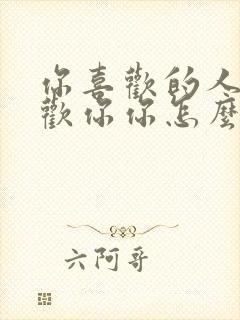 你喜歡的人
歡你你怎麼
六阿哥